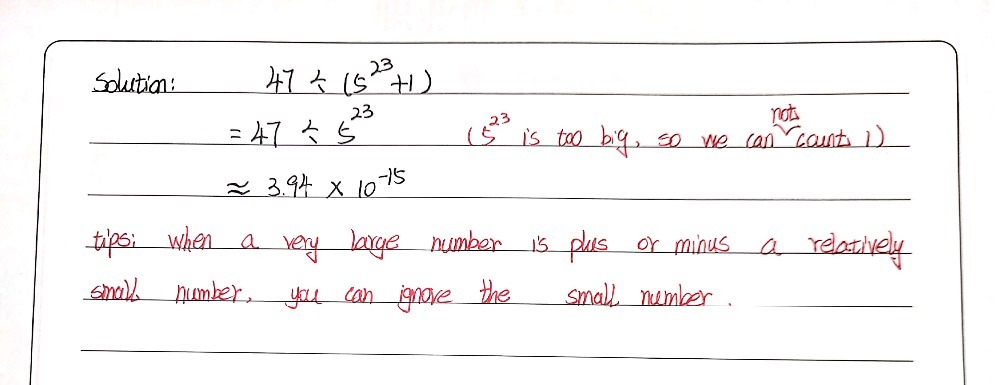 Solution: 47 ÷ (5²³+1)
= 47 ÷ 5²³ (5²³ is too big, so we can not count 1)
≈ 3.94 × 10⁻¹⁵
tips: when a very large number is plus or minus a relatively
small number, you can ignore the small number.